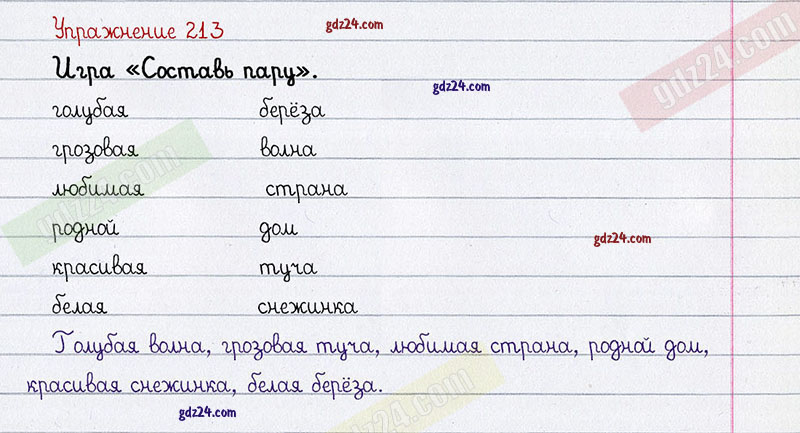 Упражнение 213
gdz24.com
Игра «Составь пару».
gdz24.com
gdz24.com
голубая берёза
грозовая волна
любимая страна
gdz24.com
родной дом
gdz24.com
красивая туча
белая снежинка
Голубая волна, грозовая туча, любимая страна, родной дом,
красивая снежинка, белая берёза.
gdz24.com
gdz24.com